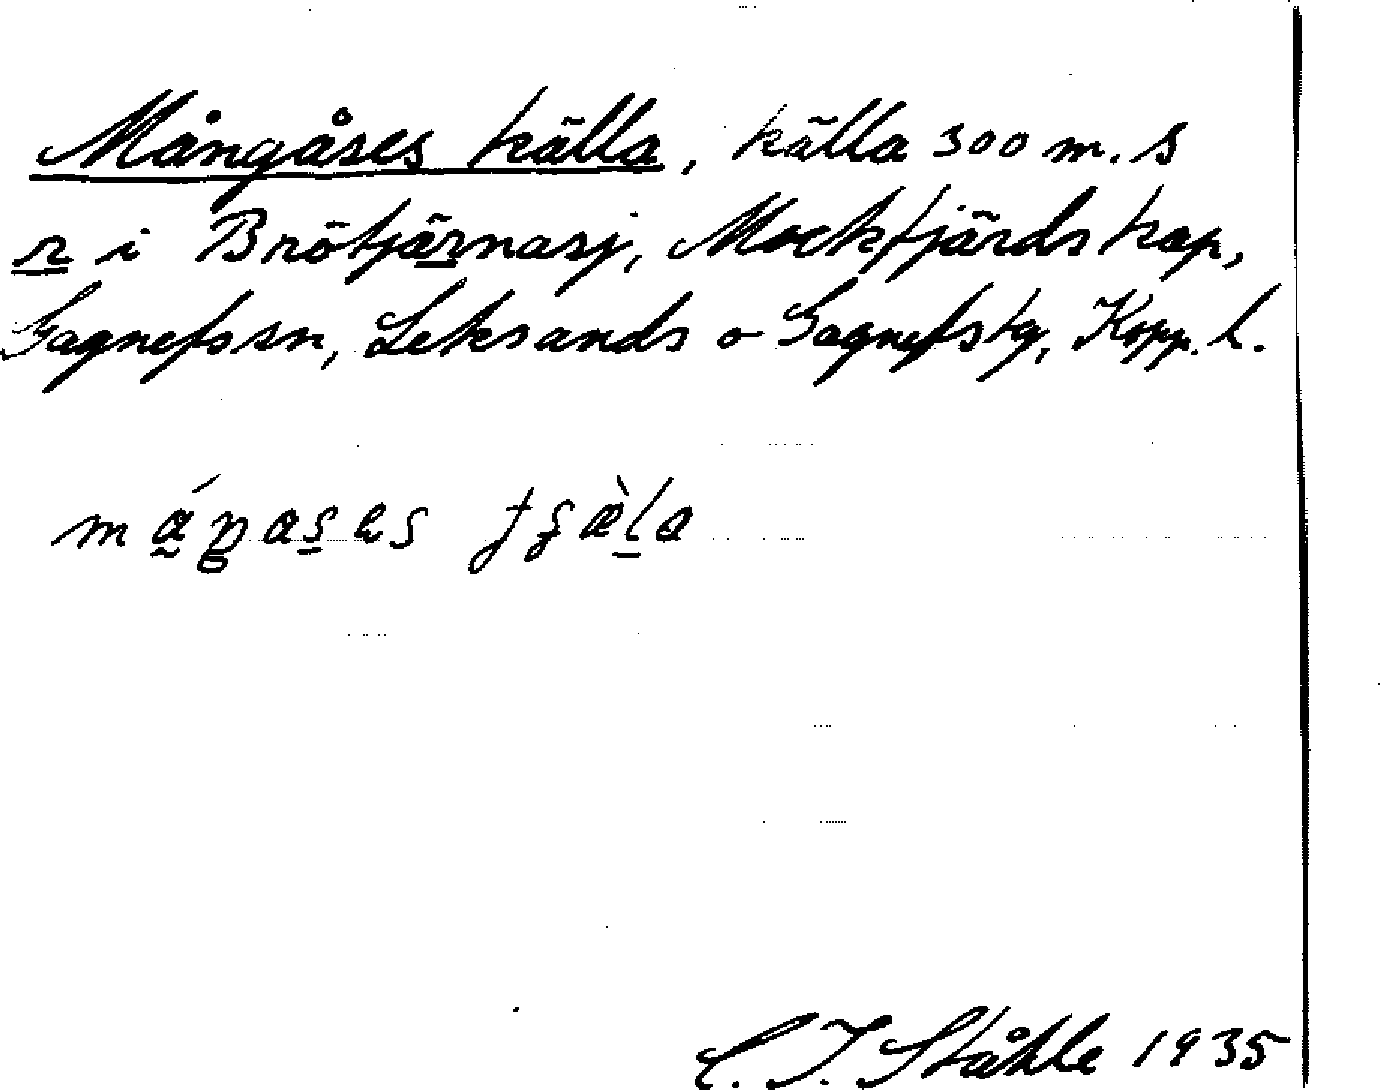 Mångåses källa, källa 300 m. S
r i Brötjärnasj, Mockfjärds kap,
Gagnefs sn, Leksands o Gagnefs tg, Kopp. l.
C. I. Ståhle 1935